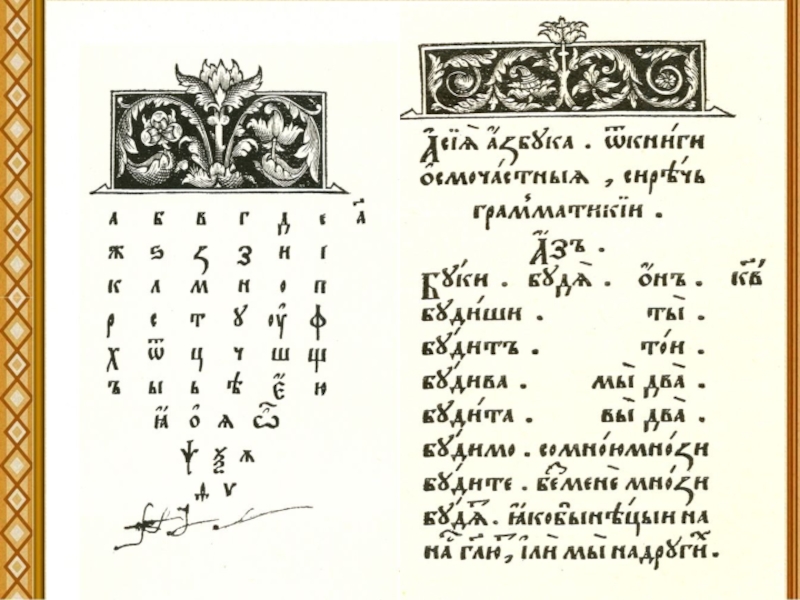 а б в г д е а҃
ж ѕ ꙁ з и і
к л м н о п
р с т ꙋ оу҆ ф
х ѿ ц ч ш щ
ъ ы ь ѣ є҆ ю
ꙗ҆ о҆ ѧ ѡ҆
ѱ ѯ ѫ
ѵ
А҆сїѧ̀ а҆́ꙁбꙋка . ѿкни́ги
о҆смоча́стныѧ , сирѣ́чь
грам̾матикїи .
А҆́зъ .
Бꙋ́ки . бꙋдѧ̀ . о҆́нъ . к҃в
бꙋди́ши . ты̀ .
бꙋ́дитъ . то́и .
бꙋ́дива . мы̀ два̀ .
бꙋ́дита . вы̀ два̀ .
бꙋ́димо . сомно́юмно́ꙁи
бꙋ́дите . беⷥменѐ мно́ꙁи
бꙋ́дѧⷮ . ꙗ҆ковы нѣ́цыи на
на̀ гл҃ю , і҆лѝ мы̀ надрꙋгиⷯ .